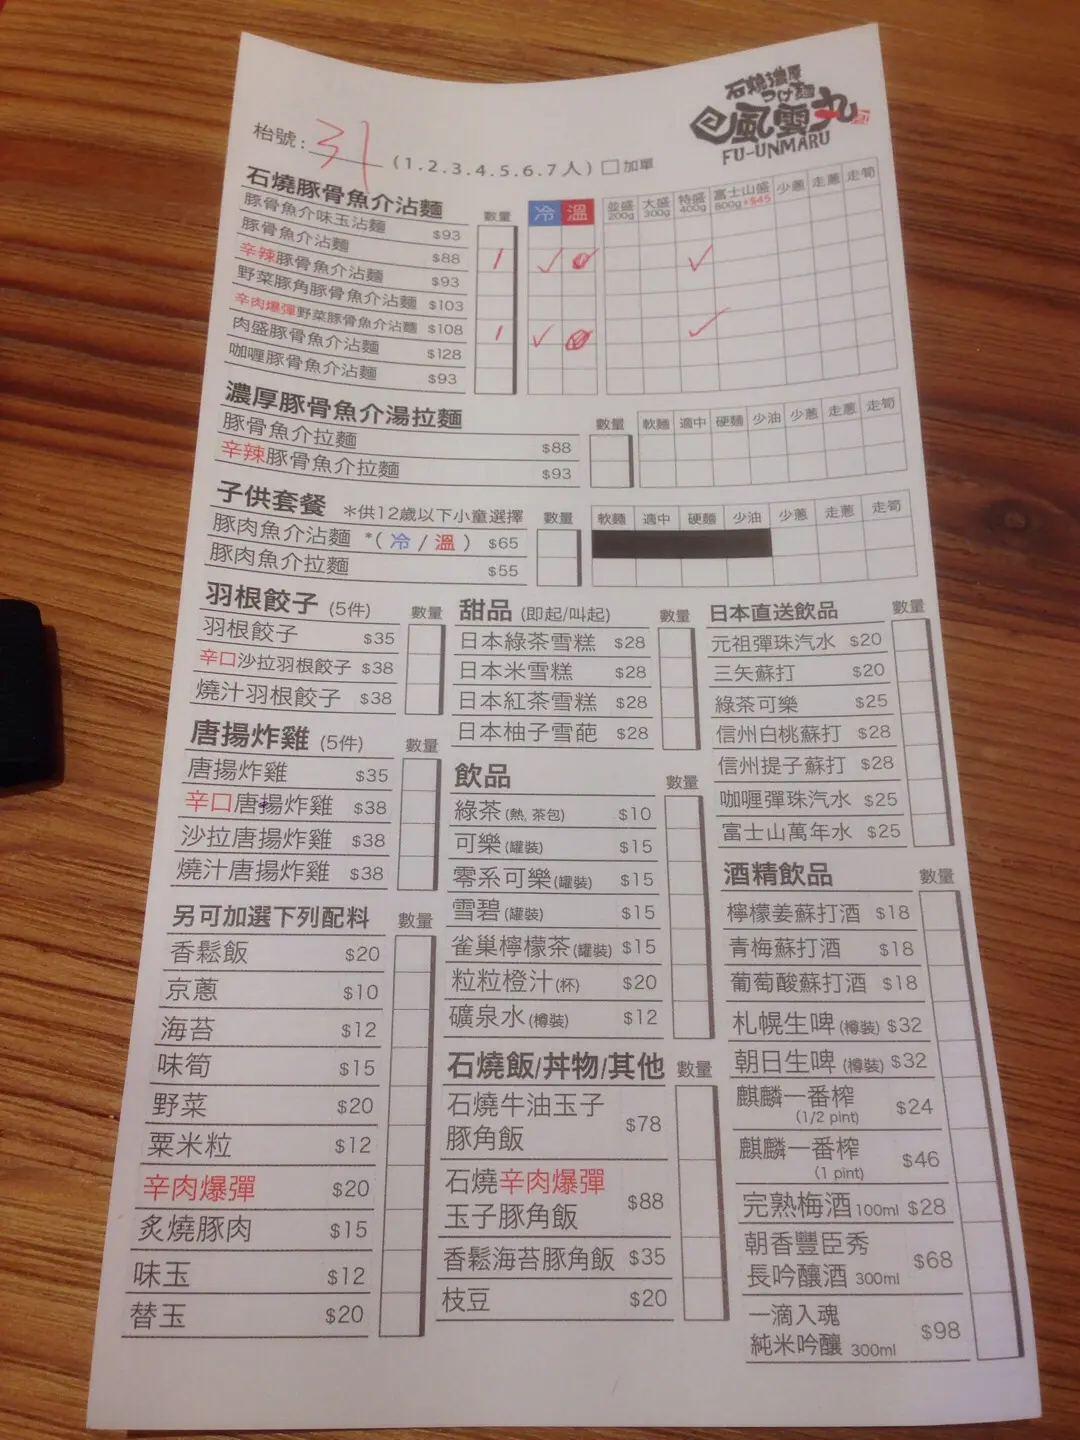 石燒濃厚
つけ麺
風雲丸
FU-UNMARU
枱號: 31 (1.2.3.4.5.6.7人) 加單
石燒豚骨魚介沾麵 數量 冷 溫 並盛 200g 大盛 300g 特盛 400g 富士山盛 800g +$45 少蔥 走蔥 走筍
豚骨魚介味玉沾麵 $93
豚骨魚介沾麵 $88 1 ✓ ✓
辛辣豚骨魚介沾麵 $93
野菜豚角豚骨魚介沾麵 $103
辛肉爆彈野菜豚骨魚介沾麵 $108 1 ✓ ✓
肉盛豚骨魚介沾麵 $128
咖喱豚骨魚介沾麵 $93
濃厚豚骨魚介湯拉麵 數量 軟麵 適中 硬麵 少油 少蔥 走蔥 走筍
豚骨魚介拉麵 $88
辛辣豚骨魚介拉麵 $93
子供套餐 *供12歲以下小童選擇 數量 軟麵 適中 硬麵 少油 少蔥 走蔥 走筍
豚肉魚介沾麵 *(冷/溫) $65
豚肉魚介拉麵 $55
羽根餃子 (5件) 數量
羽根餃子 $35
辛口沙拉羽根餃子 $38
燒汁羽根餃子 $38
唐揚炸雞 (5件) 數量
唐揚炸雞 $35
辛口唐揚炸雞 $38
沙拉唐揚炸雞 $38
燒汁唐揚炸雞 $38
另可加選下列配料 數量
香鬆飯 $20
京蔥 $10
海苔 $12
味筍 $15
野菜 $20
粟米粒 $12
辛肉爆彈 $20
炙燒豚肉 $15
味玉 $12
替玉 $20
甜品 (即起/叫起) 數量
日本綠茶雪糕 $28
日本米雪糕 $28
日本紅茶雪糕 $28
日本柚子雪葩 $28
飲品 數量
綠茶(熱, 茶包) $10
可樂(罐裝) $15
零系可樂(罐裝) $15
雪碧(罐裝) $15
雀巢檸檬茶(罐裝) $15
粒粒橙汁(杯) $20
礦泉水(樽裝) $12
石燒飯/丼物/其他 數量
石燒牛油玉子
豚角飯 $78
石燒辛肉爆彈
玉子豚角飯 $88
香鬆海苔豚角飯 $35
枝豆 $20
日本直送飲品 數量
元祖彈珠汽水 $20
三矢蘇打 $20
綠茶可樂 $25
信州白桃蘇打 $28
信州提子蘇打 $28
咖喱彈珠汽水 $25
富士山萬年水 $25
酒精飲品 數量
檸檬姜蘇打酒 $18
青梅蘇打酒 $18
葡萄酸蘇打酒 $18
札幌生啤(樽裝) $32
朝日生啤(樽裝) $32
麒麟一番榨
(1/2 pint) $24
麒麟一番榨
(1 pint) $46
完熟梅酒100ml $28
朝香豐臣秀
長吟釀酒 300ml $68
一滴入魂
純米吟釀 300ml $98